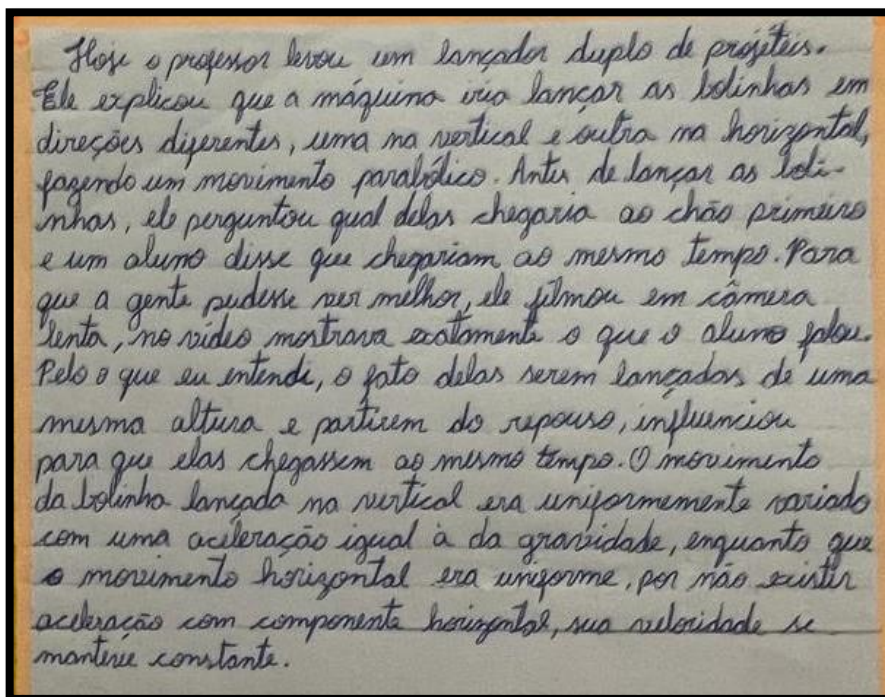 Hoje o professor levou um lançador duplo de projéteis.
Ele explicou que a máquina iria lançar as bolinhas em
direções diferentes, uma na vertical e outra na horizontal,
fazendo um movimento parabólico. Antes de lançar as boli-
nhas, ele perguntou qual delas chegaria ao chão primeiro
e um aluno disse que chegariam ao mesmo tempo. Para
que a gente pudesse ver melhor, ele filmou em câmera
lenta, no vídeo mostrava exatamente o que o aluno falou.
Pelo o que eu entendi, o fato delas serem lançadas de uma
mesma altura e partirem do repouso, influenciou
para que elas chegassem ao mesmo tempo. O movimento
da bolinha lançada na vertical era uniformemente variado
com uma aceleração igual à da gravidade, enquanto que
o movimento horizontal era uniforme, por não existir
aceleração com componente horizontal, sua velocidade se
manteve constante.